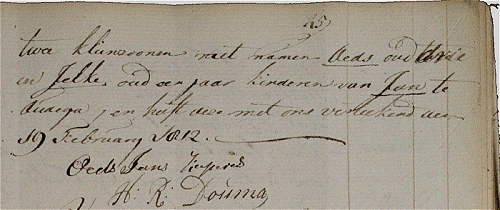 45)
twee kleinzoonen met namen Oeds oud drie
en Jelke, oud een jaar kinderen van Jan te
Oudega, en heeft deze met ons getekend den
19 February 1812.
Oeds Jans
H: R: Douma